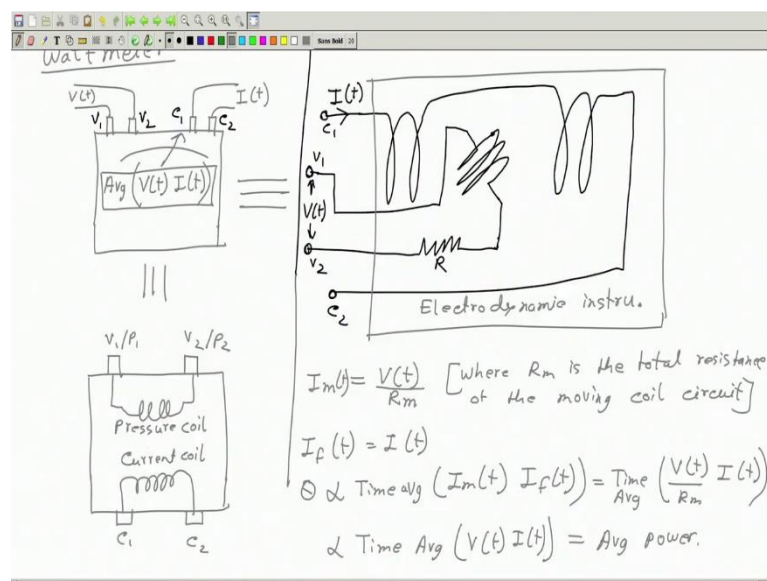 Sans Bold 20
Wattmeter
V(t)
I(t)
V1 V2 C1 C2
Avg (V(t) I(t))
V1/P1 V2/P2
Pressure coil
Current coil
C1 C2
I(t)
C1
V1
V(t)
V2
R
C2
Electrodynamic instru.
Im(t) = V(t)/Rm [where Rm is the total resistance
of the moving coil circuit]
If(t) = I(t)
θ α Time avg (Im(t) If(t)) = Time Avg (V(t)/Rm I(t))
α Time Avg (V(t) I(t)) = Avg power.